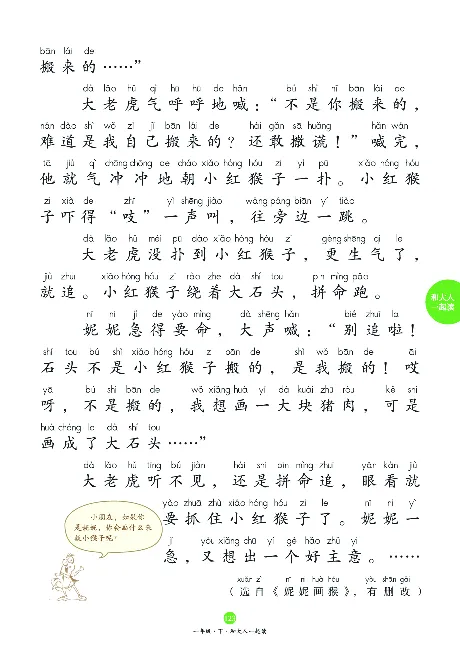 bān lái de
搬来的……”
dà lǎo hǔ qì hū hū de hǎn bú shì nǐ bān lái de
大老虎气呼呼地喊：“不是你搬来的，
nán dào shì wǒ zì jǐ bān lái de hái gǎn sā huǎng hǎn wán
难道是我自己搬来的？还敢撒谎！”喊完，
tā jiù qì chōng chōng de cháo xiǎo hóng hóu zi yì pū xiǎo hóng hóu
他就气冲冲地朝小红猴子一扑。小红猴
zi xià de zhī yì shēng jiào wǎng páng biān yí tiào
子吓得“吱”一声叫，往旁边一跳。
dà lǎo hǔ méi pū dào xiǎo hóng hóu zi gèng shēng qì le
大老虎没扑到小红猴子，更生气了，
jiù zhuī xiǎo hóng hóu zi rào zhe dà shí tou pīn mìng pǎo
就追。小红猴子绕着大石头，拼命跑。
nī ni jí de yào mìng dà shēng hǎn bié zhuī la
妮妮急得要命，大声喊：“别追啦！
shí tou bú shì xiǎo hóng hóu zi bān de shì wǒ bān de āi
石头不是小红猴子搬的，是我搬的！哎
yā bú shì bān de wǒ xiǎng huà yí dà kuài zhū ròu kě shì
呀，不是搬的，我想画一大块猪肉，可是
huà chéng le dà shí tou
画成了大石头……”
dà lǎo hǔ tīng bú jiàn hái shì pīn mìng zhuī yǎn kàn jiù
大老虎听不见，还是拼命追，眼看就
yào zhuā zhù xiǎo hóng hóu zi le nī ni yì
要抓住小红猴子了。妮妮一
jí yòu xiǎng chū yí gè hǎo zhǔ yi
急，又想出一个好主意。……
小朋友，如果你
是妮妮，你会画什么来
救小猴子呢？
xuǎn zì nī ni huà hóu yǒu shān gǎi
（选自《妮妮画猴》，有删改）
和大人
一起读
一年级·下·和大人一起读